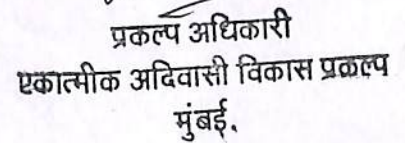 प्रकल्प अधिकारी
एकात्मीक अदिवासी विकास प्रकल्प
मुंबई.